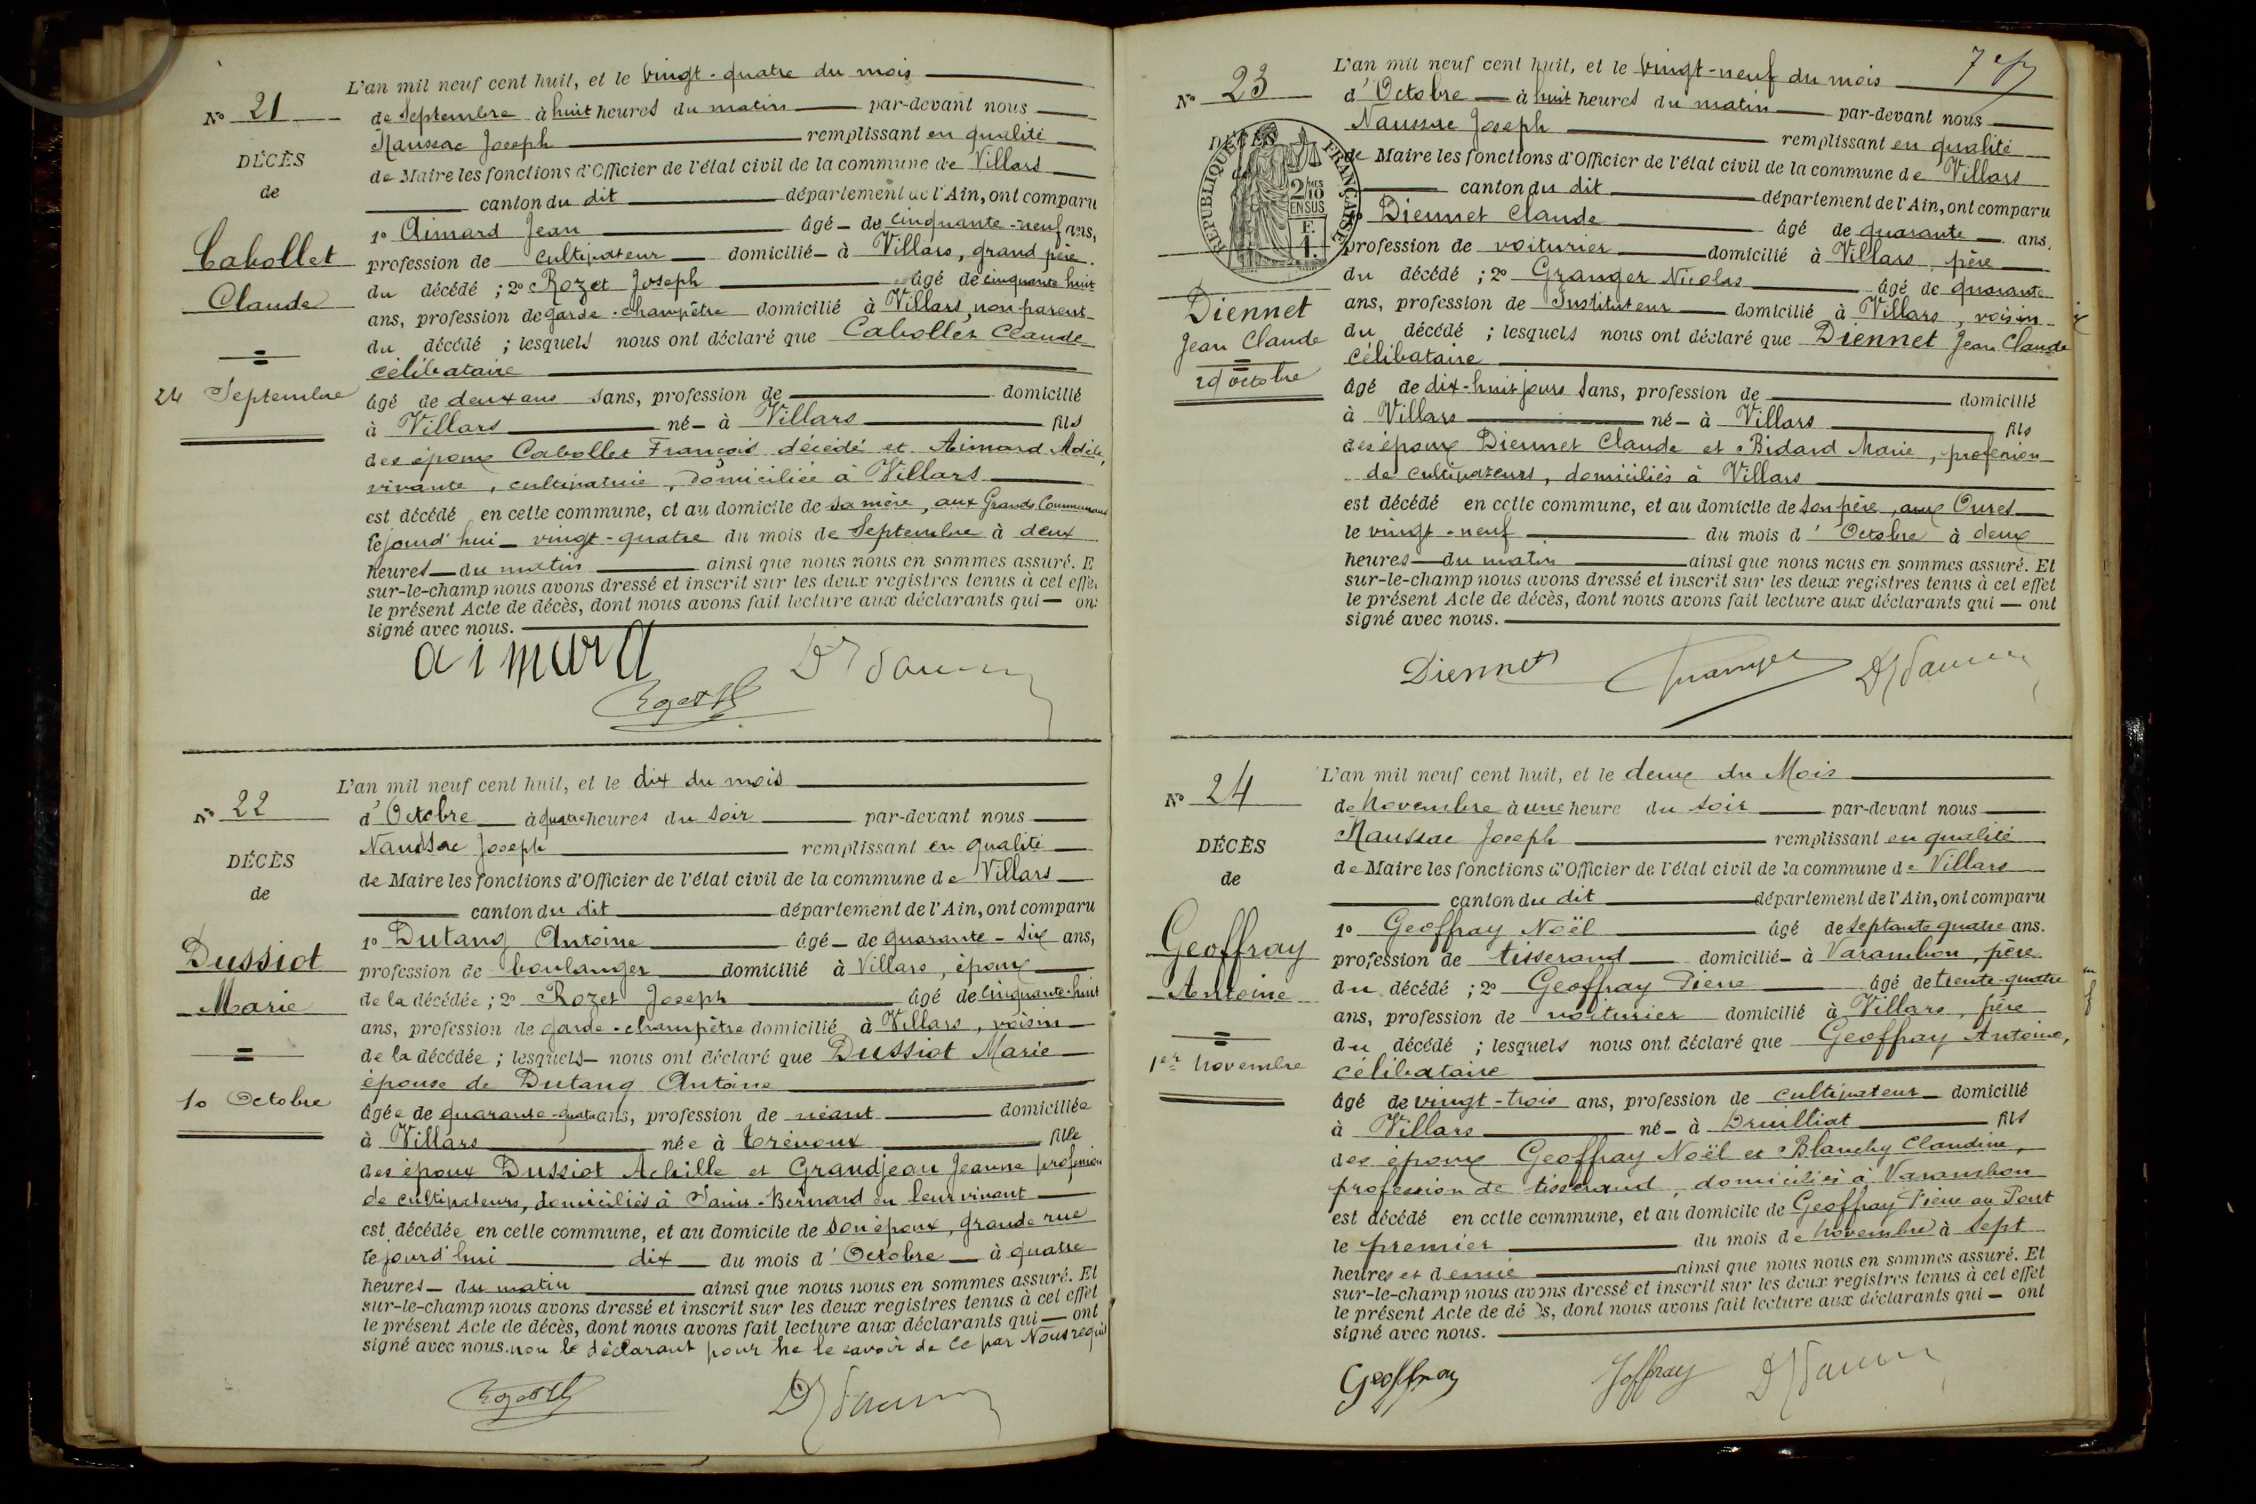 L'an mil neuf cent huit, et le vingt-quatre du mois
No 21
de Septembre à huit heures du matin par-devant nous
Naussac Joseph remplissant en qualité
DÉCÈS
de Maire les fonctions d'Officier de l'état civil de la commune de Villars
de
canton du dit département de l'Ain, ont comparu
1o Aimard Jean âgé de cinquante-neuf ans,
Cabollet
profession de cultivateur domicilié à Villars, grand père
Claude
du décédé ; 2o Rozet Joseph âgé de cinquante huit
ans, profession de garde-champêtre domicilié à Villars, non parent
du décédé ; lesquels nous ont déclaré que Cabollet Claude
célibataire
24 Septembre
âgé de deux ans sans, profession de domicilié
à Villars né à Villars fils
des époux Cabollet François décédé et Aimard Adèle,
vivante, cultivatrice, domiciliée à Villars
est décédé en cette commune, et au domicile de sa mère, aux Grands Communaux
lejourd'hui vingt-quatre du mois de Septembre à deux
heures du matin ainsi que nous nous en sommes assuré. E
sur-le-champ nous avons dressé et inscrit sur les deux registres tenus à cet effe
le présent Acte de décès, dont nous avons fait lecture aux déclarants qui on
signé avec nous.
aimard
L'an mil neuf cent huit, et le dix du mois
No 22
d'Octobre à quatre heures du soir par-devant nous
Naussac Joseph remplissant en qualité
DÉCÈS
de Maire les fonctions d'Officier de l'état civil de la commune de Villars
de
canton du dit département de l'Ain, ont comparu
1o Dutang Antoine âgé de quarante-six ans,
Dussiot
profession de boulanger domicilié à Villars, époux
Marie
de la décédée ; 2o Rozet Joseph âgé de cinquante-huit
ans, profession de garde-champêtre domicilié à Villars, voisin
de la décédée ; lesquels nous ont déclaré que Dussiot Marie
épouse de Dutang Antoine
10 Octobre
âgée de quarante-quatre ans, profession de néant domiciliée
à Villars née à Trévoux fille
des époux Dussiot Achille et Grandjean Jeanne profession
de cultivateurs, domiciliés à Saint-Bernard en leur vivant
est décédée en cette commune, et au domicile de son époux, grande rue
lejourd'hui dix du mois d'Octobre à quatre
heures du matin ainsi que nous nous en sommes assuré. Et
sur-le-champ nous avons dressé et inscrit sur les deux registres tenus à cet effet
le présent Acte de décès, dont nous avons fait lecture aux déclarants qui ont
signé avec nous. non le déclarant pour ne le savoir de ce par Nous requis
7
L'an mil neuf cent huit, et le vingt-neuf du mois
No 23
d'Octobre à huit heures du matin par-devant nous
Naussac Joseph remplissant en qualité
DÉCÈS
RÉPUBLIQUE FRANÇAISE
2/10 EN SUS
F. 1.
de Maire les fonctions d'Officier de l'état civil de la commune de Villars
canton du dit département de l'Ain, ont comparu
1o Diennet Claude âgé de quarante ans,
profession de voiturier domicilié à Villars, père
du décédé ; 2o Granger Nicolas âgé de quarante
Diennet
ans, profession de Instituteur domicilié à Villars, voisin
Jean Claude
du décédé ; lesquels nous ont déclaré que Diennet Jean Claude
célibataire
29 octobre
âgé de dix-huit jours sans, profession de domicilié
à Villars né à Villars fils
des époux Diennet Claude et Bidard Marie, profession
de cultivateurs, domiciliés à Villars
est décédé en cette commune, et au domicile de son père, aux Oures
le vingt-neuf du mois d'Octobre à deux
heures du matin ainsi que nous nous en sommes assuré. Et
sur-le-champ nous avons dressé et inscrit sur les deux registres tenus à cet effet
le présent Acte de décès, dont nous avons fait lecture aux déclarants qui ont
signé avec nous.
Diennet Granger
L'an mil neuf cent huit, et le deux du Mois
No 24
de Novembre à une heure du soir par-devant nous
Naussac Joseph remplissant en qualité
DÉCÈS
de Maire les fonctions d'Officier de l'état civil de la commune de Villars
de
canton du dit département de l'Ain, ont comparu
1o Geoffray Noël âgé de septante quatre ans.
Geoffray
profession de tisserand domicilié à Varambon, père
Antoine
du décédé ; 2o Geoffray Pierre âgé de trente-quatre
ans, profession de voiturier domicilié à Villars, frère
du décédé ; lesquels nous ont déclaré que Geoffray Antoine,
1er Novembre
célibataire
âgé de vingt-trois ans, profession de cultivateur domicilié
à Villars né à Druilliat fils
des époux Geoffray Noël et Blanchy Claudine,
profession de tisserand, domiciliés à Varambon
est décédé en cette commune, et au domicile de Geoffray Pierre au Pont
le premier du mois de Novembre à sept
heures et demie ainsi que nous nous en sommes assuré. Et
sur-le-champ nous avons dressé et inscrit sur les deux registres tenus à cet effet
le présent Acte de dé s, dont nous avons fait lecture aux déclarants qui ont
signé avec nous.
Geoffray Joffray